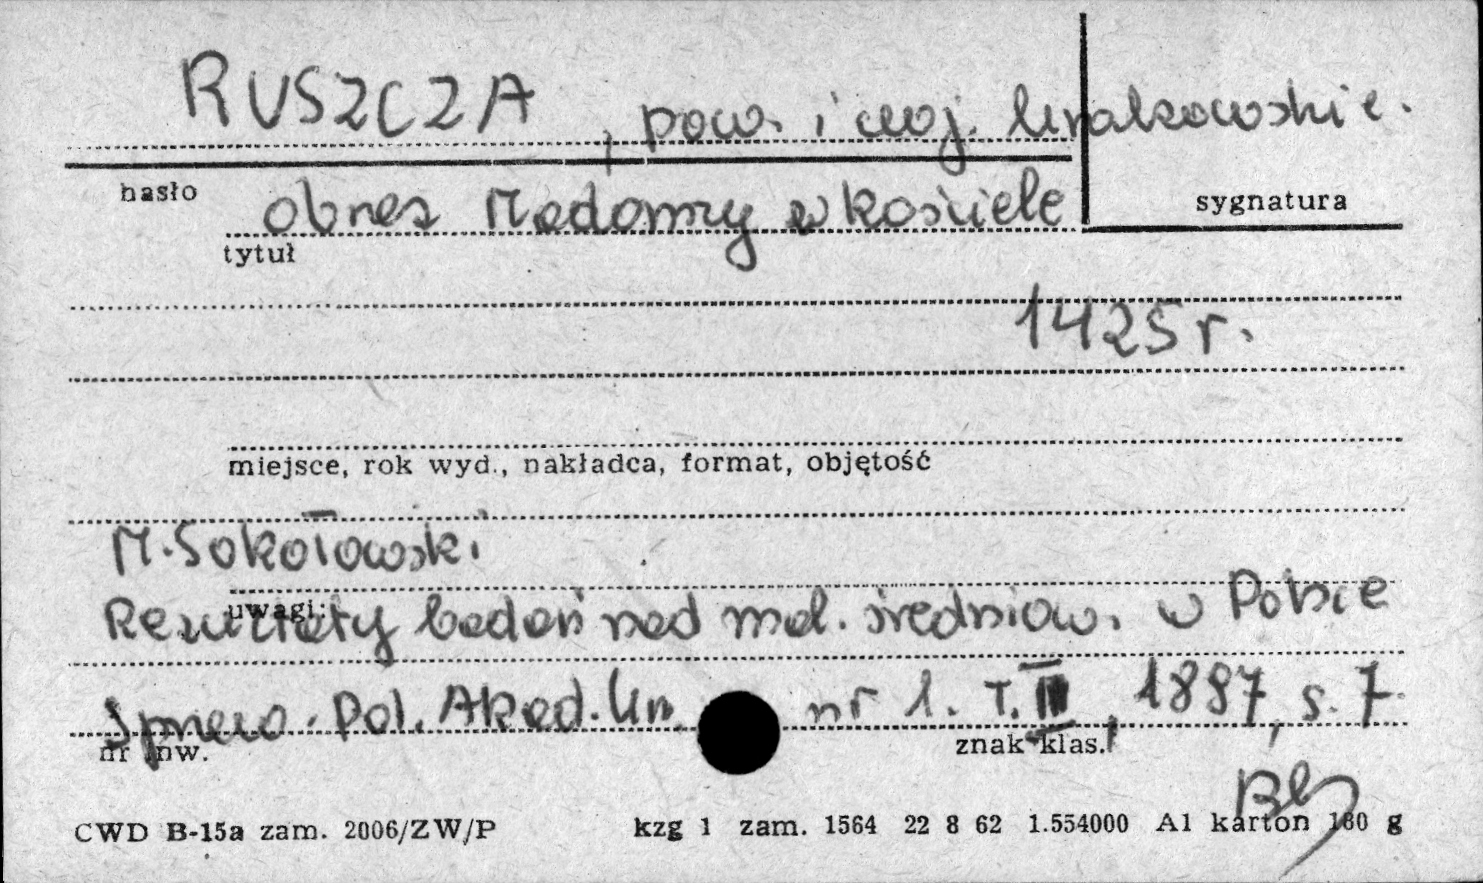 RUSZCZA, pow. i woj. krakowskie.
hasło
sygnatura
obraz Madonny w kościele
tytuł
1425 r.
miejsce, rok wyd., nakładca, format, objętość
M. Sokołowski
uwagi:
Rezultaty badań nad mal. średniow. w Polsce
Spraw. Pol. Akad. Um. nr 1. T. II, 1897, s. 7
nr inw.
znak klas.
CWD B-15a zam. 2006/ZW/P
kzg 1 zam. 1564 22 8 62 1.554000 A1 karton 180 g